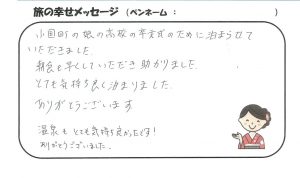 旅の幸せメッセージ (ペンネーム : )
小国町の娘の高校の卒業式のために泊まらせて
いただきました
朝食も早くしていただき助かりました。
とても気持ち良く泊まりました
ありがとうございます
温泉もとても気持ち良かったです!
ありがとうございました。